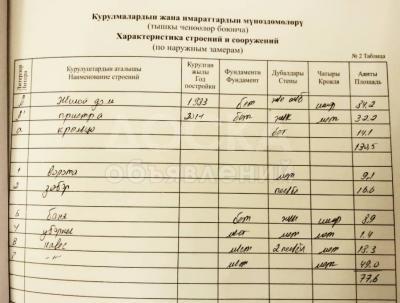 Курулмалардын жана имараттардын мүнөздөмөлөрү
(тышкы ченөөлөр боюнча)
Характеристика строений и сооружений
(по наружным замерам)
№ 2 Таблица
Литерлер Литера | Курулуштардын аталышы Наименование строений | Курулган жылы Год постройки | Фундаменти Фундамент | Дубалдары Стены | Чатыры Кровля | Аянты Площадь
Жилой дом 1983 бет шиф 84.2
пристр. 2014 бет жк мет 32.2
а крыльцо бет 14.1
130.5
1 ворота мет 9.1
2 забор 16.6
баня бет шиф 8.9
уборная мет 1.4
навес 18.3
-"- мет 49.0
77,6
объявлений